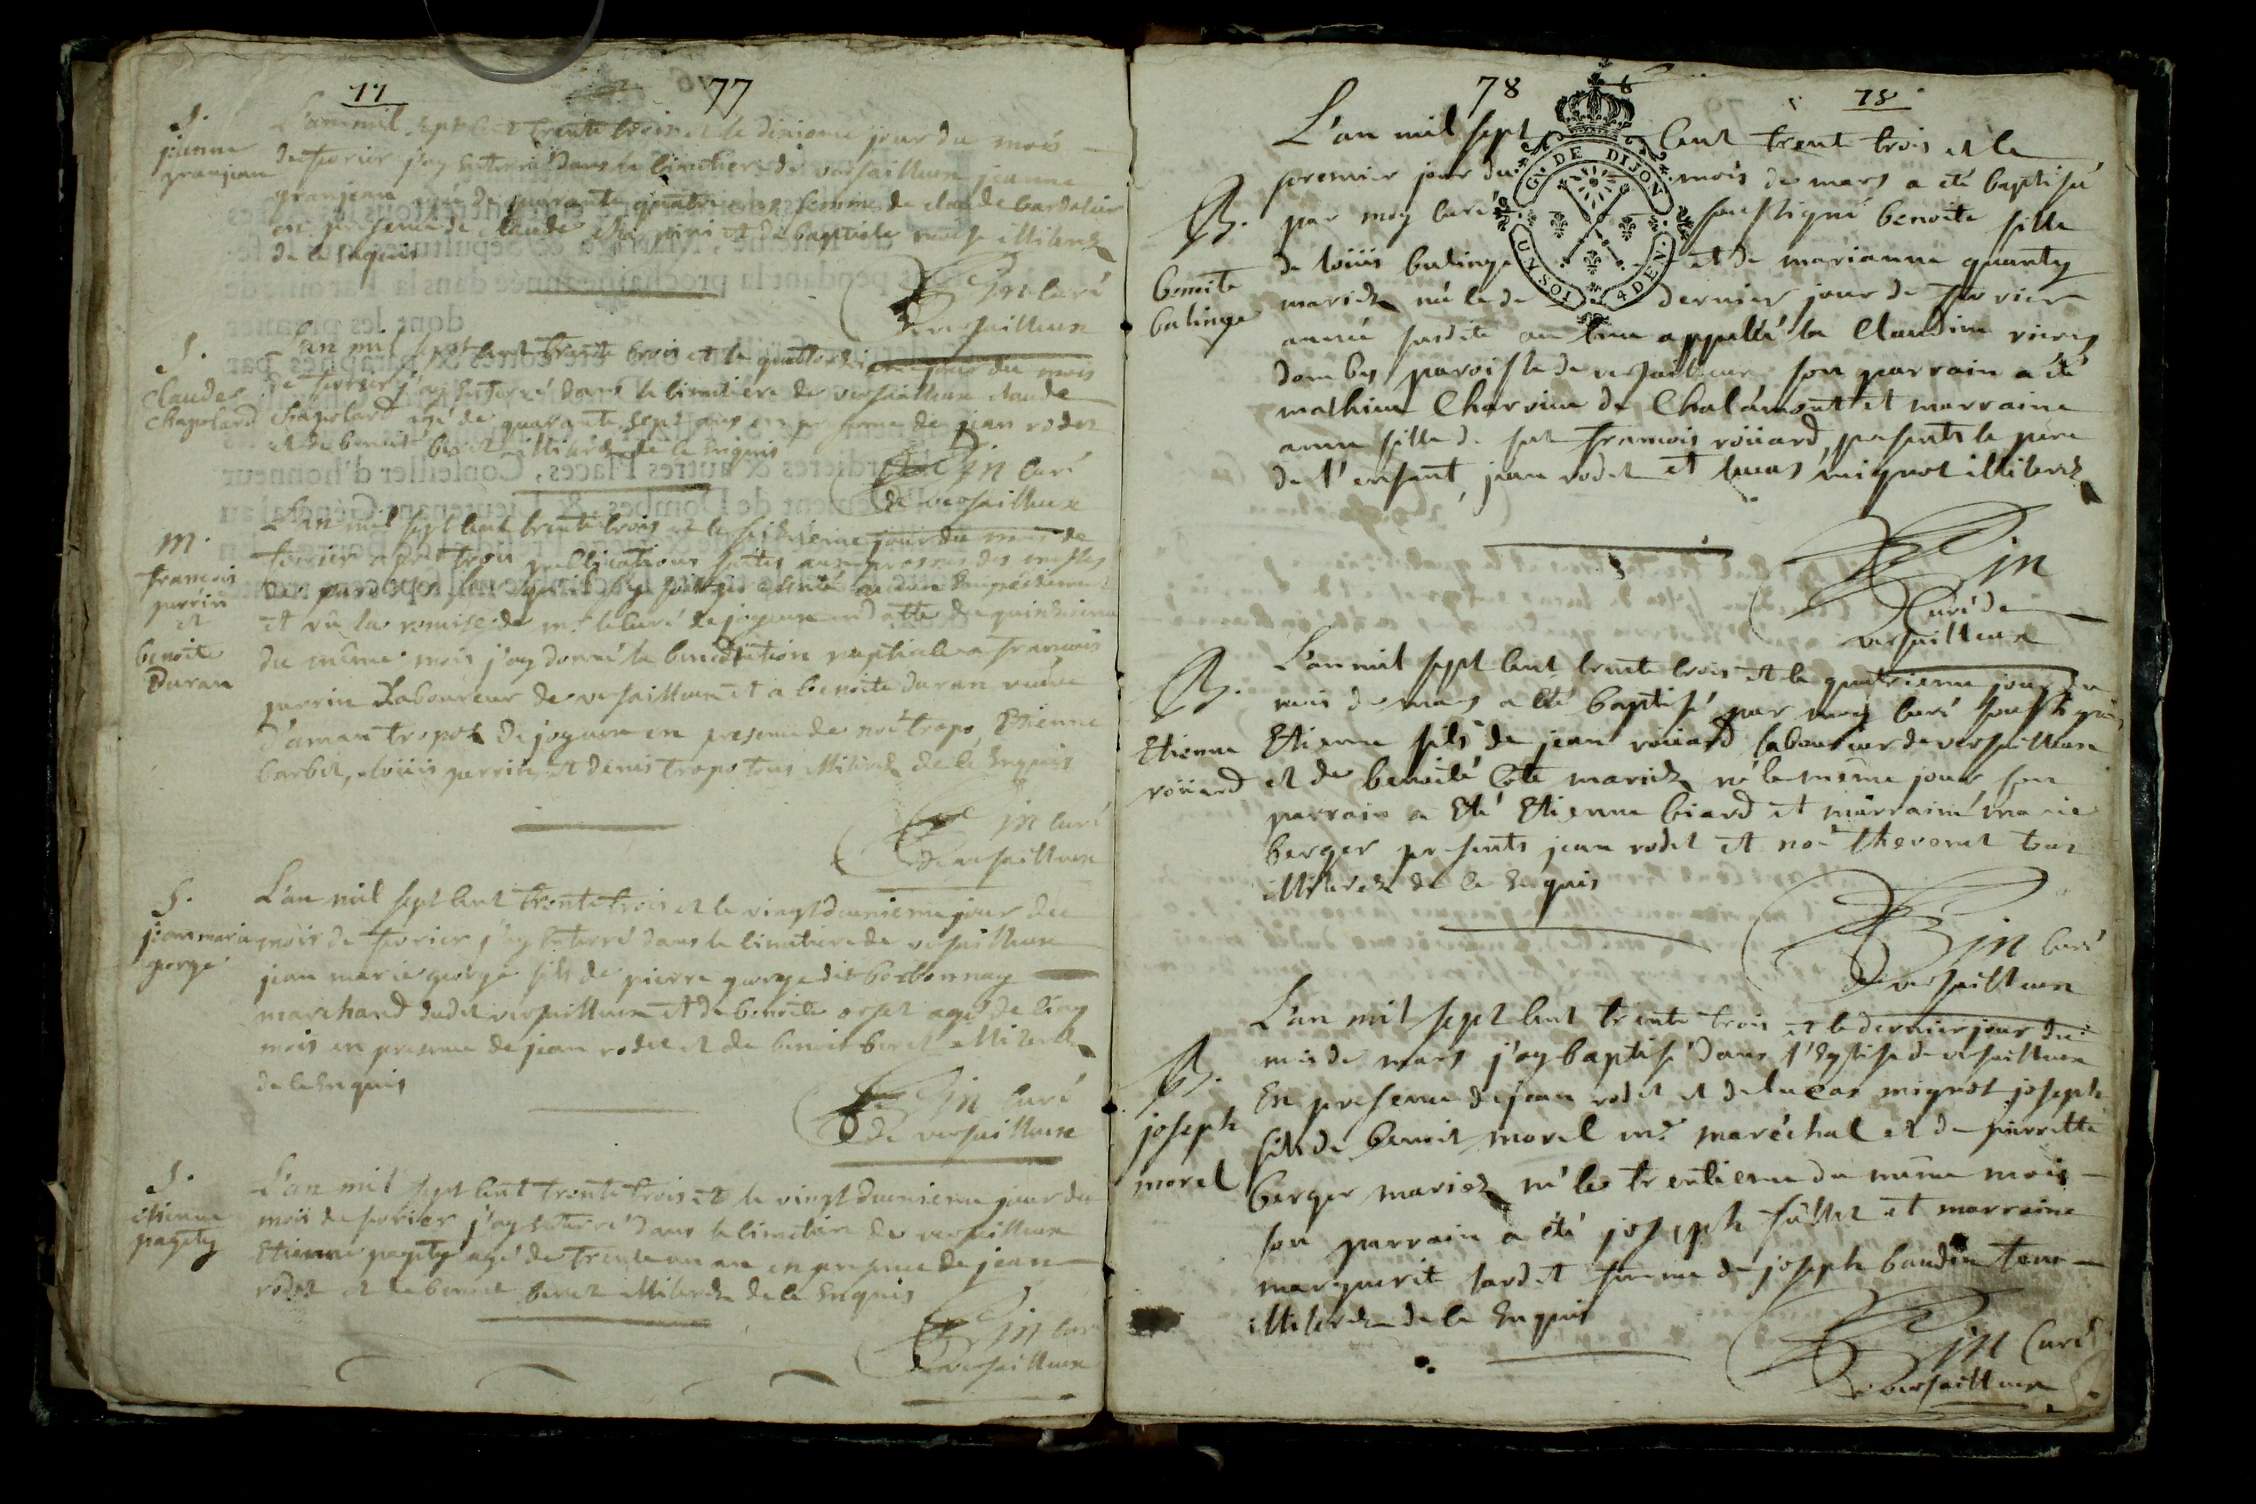 77
77
S.
jeanne
granjean
L'an mil sept cent trente trois et le dixieme jour du mois
de fevrier j'ay enterré dans le cimetiere de versailleux jeanne
granjean agée de quarante quatre ans femme de claude
en presence de claude et de baptiste illiterés
de ce enquis
Bin curé
de versailleux
S.
claude
chapolard
L'an mil sept cent trente trois et le quatorzieme jour du mois
de fevrier j'ay enterré dans le cimetiere de versailleux claude
chapolard agé de quarante sept ans en presence de jean rodet
et de benoit beret illiterés de ce enquis
Bin curé
de versailleux
M.
francois
perrin
et
benoite
Duran
L'an mil sept cent trente trois et le seizieme jour du mois de
fevrier apres trois publications faites aux prosnes des messes
de paroisse
et vu la remise de mr le curé de joyeux en datte du quinzieme
du même mois j'ay donné la benediction nuptiale a francois
perrin Laboureur de versailleux et a benoite duran veuve
d'aman tropot de joyeux en presence de tropo, Etienne
barbet, loüis perrin, et denis tropo tous illiterés de ce enquis
Bin curé
de versailleux
S.
jean marie
george
L'an mil sept cent trente trois et le vingt deuxieme jour du
mois de fevrier j'ay enterré dans le cimetiere de versailleux
jean marie george fils de pierre george dit borbonnay
marchand dudit versailleux et de benoite orset agé de cinq
mois en presence de jean rodet et de benoit beret illiterés
de ce enquis
Bin curé
de versailleux
S.
etienne
pagety
L'an mil sept cent trente trois et le vingt deuxieme jour du
mois de fevrier j'ay enterré dans le cimetiere de versailleux
Etienne pagety agé de trente un an en presence de jean
rodet et de benoit beret illiterés de ce enquis
Bin curé
de versailleux
78
78
GN. DE DIJON
UN SOL 4 DEN.
B.
benoite
balinge
L'an mil sept cent trent trois et le
premier jour du mois de mars a eté baptisé
par moy curé soussigné benoite fille
de loüis balinge et de marianne quanty
mariés née le dernier jour de fevrier
année susdite au lieu appellé la Claudine riere
dombes paroisse de versailleux son parrain a été
mathieu Charvin de Chalamont et marraine
anne fille de feu francois roüard, presents le pere
de l'enfant, jean rodet et lucas mignot illiterés
Bin
Curé de
versailleux
B.
Etienne
roüard
L'an mil sept cent trente trois et le quatrieme jour du
mois de mars a eté baptisé par moy curé soussigné
Etienne fils de jean roüard laboureur de versailleux
et de benoite Cote mariés né le même jour son
parrain a eté Etienne biard et marraine marie
berger presents jean rodet et thevenet tous
illiterés de ce enquis
Bin curé
de versailleux
B.
joseph
morel
L'an mil sept cent trente trois et le dernier jour du
mois de mars j'ay baptisé dans l'Eglise de versailleux
En presence de jean rodet et de lucas mignot joseph
fils de benoit morel me maréchal et de pierrette
berger mariés né le trentieme du même mois
son parrain a été joseph et marraine
marguerit femme de joseph baudin tous
illiterés de ce enquis
Bin Curé
de versailleux